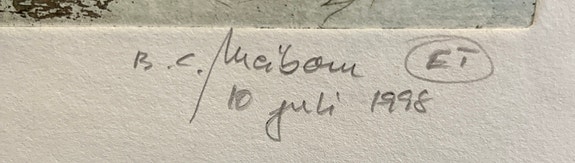 B.C. Meibom ET
10 juli 1998